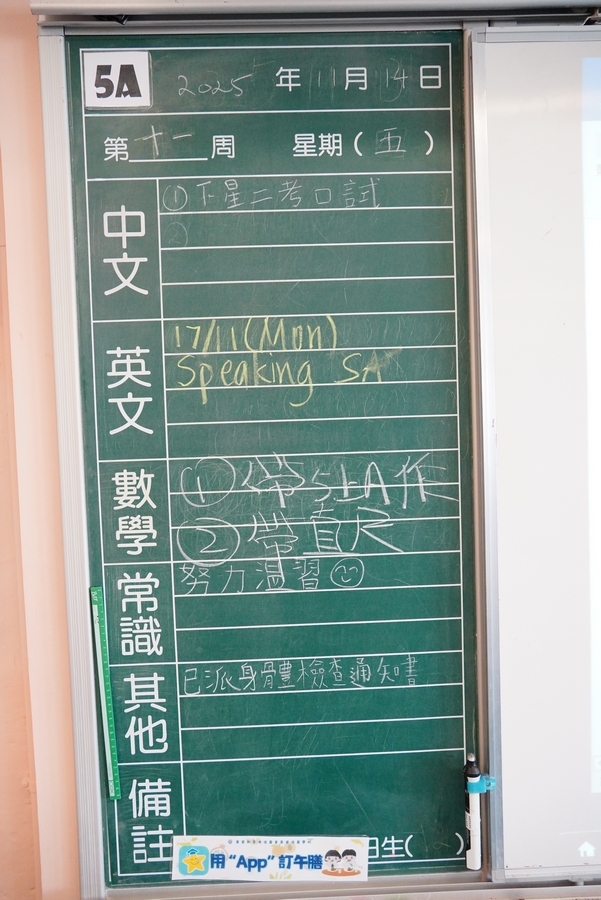 5A 2025 年 11 月 14 日
第十一周 星期(五)
中文
① 下星二考口試
②
英文
17/11(Mon)
Speaking SA
數學
① 帶5上A作
② 帶直尺
常識
努力溫習
其他
已派身體檢查通知書
備註
日生( )
用“App”訂午膳